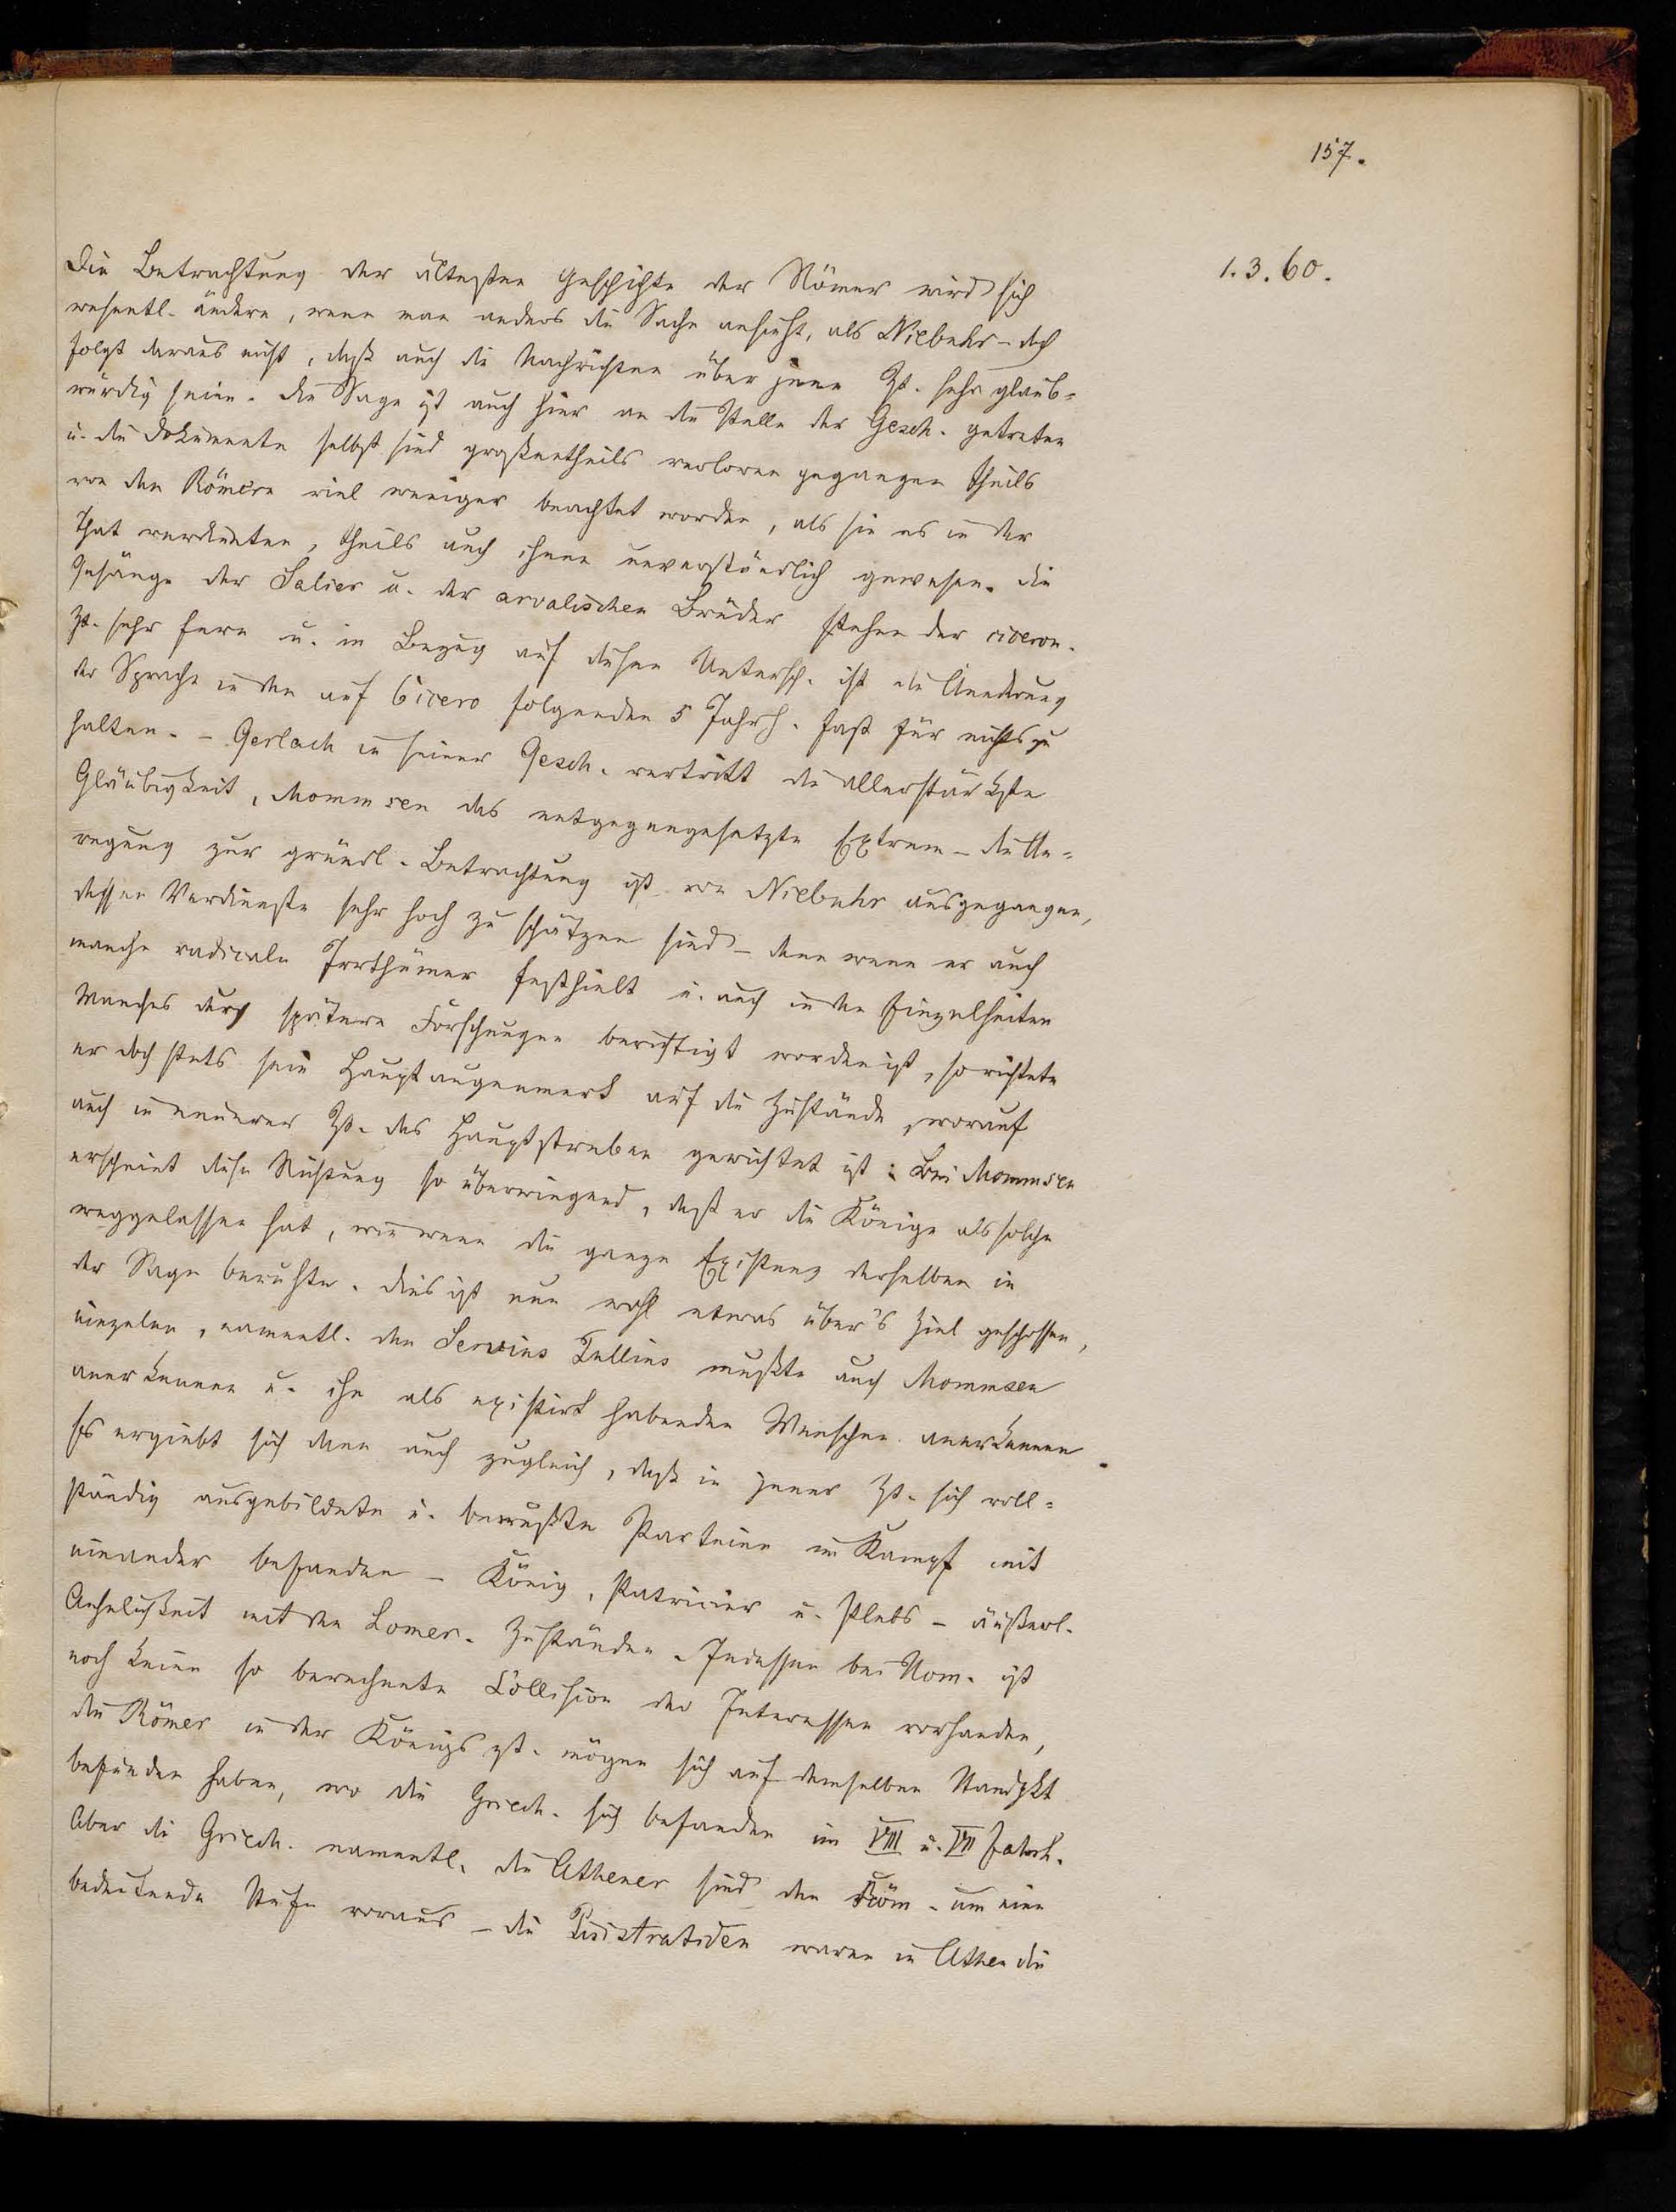 157.
1.3.60.
Die Betrachtung der ältesten Geschichte der Römer wird sich
wesentl. ändern, wenn man anders die Sache ansieht, als Niebuhr – doch
folgt daraus nicht, daß auch die Nachrichten über jene Zt. sehr glaub-
würdig seien. Die Sage ist auch hier an die Stelle der Gesch. getreten
u. die Dokumente selbst sind großentheils verloren gegangen theils
von den Römern viel weniger beachtet worden, als sie es in der
That verdienten, theils auch ihnen unverständlich gewesen. Die
Gesänge der Salier u. der arvalischen Brüder stehen der ciceron.
Zt. sehr fern u. in Bezug auf diesen Untersch. ist die Aenderung
der Sprache in den auf Cicero folgenden 5 Jahrh. fast für nichts zu
halten. – Gerlach in seiner Gesch. vertritt die allerstärkste
Gläubigkeit, Mommsen das entgegengesetzte Extrem – die An-
regung zur gründl. Betrachtung ist von Niebuhr ausgegangen,
dessen Verdienste sehr hoch zu schätzen sind – denn wenn er auch
manche radicale Irrthümer festhielt u. auch in den Einzelheiten
Manches durch spätere Forschungen berichtigt worden ist, so richtete
er doch stets sein Hauptaugenmerk auf die Zustände, worauf
auch in neuerer Zt. das Hauptstreben gerichtet ist: Bei Mommsen
erscheint diese Richtung so überwiegend, daß er die Könige als solche
weggelassen hat, wie wenn die ganze Existenz derselben in
der Sage beruhte. Dies ist nun wohl etwas über's Ziel geschossen,
einzelne, namentl. den Servius Tullius mußte auch Mommsen
anerkennen u. ihn als existirt habenden Menschen anerkennen.
Es ergiebt sich dann auch zugleich, daß in jener Zt. sich voll-
ständig ausgebildete u. bewußte Parteien im Kampf mit
einander befanden – König, Patricier u. Plebs – äußerl.
Aehnlichkeit mit den Homer. Zuständen. Indessen bei Hom. ist
noch keine so berechnete Collision der Interessen vorhanden,
die Römer in der Königszt. mögen sich auf demselben Standpkt
befunden haben, wo die Griech. sich befanden im VIII u. VII Jahrh.
Aber die Griech. namentl. die Athener sind den Röm. um eine
bedeutende Stufe voraus – die Pisistratiden waren in Athen die